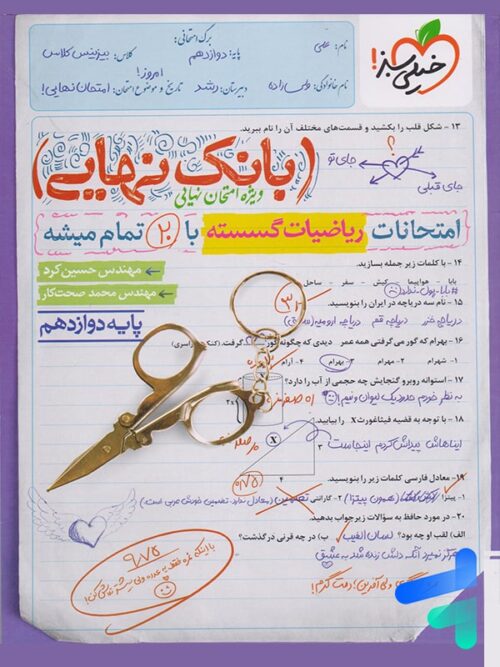 خیلی سبز!
برگ امتحانی:
نام: علی
پایه: دوازدهم
کلاس: بیزینس کلاس
نام خانوادگی:
دبیرستان: رشد
تاریخ و موضوع امتحان: امروز! امتحان نهایی!
۱۳ - شکل قلب را بکشید و قسمت‌های مختلف آن را نام ببرید.
جای تو
جای قبلی
؟
(بانک نهایی)
ویژه امتحان نهایی
امتحانات ریاضیات گسسته با ۲۰ تمام میشه
مهندس حسین کرد
مهندس محمد صحت‌کار
پایه دوازدهم
۱۴ - با کلمات زیر جمله بسازید.
بابا - هواپیما - کیش - سفر - ساحل
#بابا_پول_نداره
۱۵ - نام سه دریاچه در ایران را بنویسید.
دریاچه خزر دریاچه قم دریاچه ارومیه
۱۶ - بهرام که گور می‌گرفتی همه عمر دیدی که چگونه گور گرفت.
۱- شهرام ۲- مهرام ۳- بهرام ۴- آرام
۱۷ - استوانه روبرو گنجایش چه حجمی از آب را دارد؟
به نظر خودم حدود یک لیوان و نیم!
۱۸ - با توجه به قضیه فیثاغورث X را بیابید.
ایناهاش پیداش کردم اینجاست
X
۳
۴
۱۹- معادل فارسی کلمات زیر را بنویسید.
۱- پیتزا (همون پیتزا) ۲- گارانتی
۲۰- در مورد حافظ به سؤالات زیر جواب بدهید.
الف) لقب او چه بود؟ لسان الغیب ب) در چه قرنی درگذشت؟
هرگز نمیرد آنکه دلش زنده شد به عشق